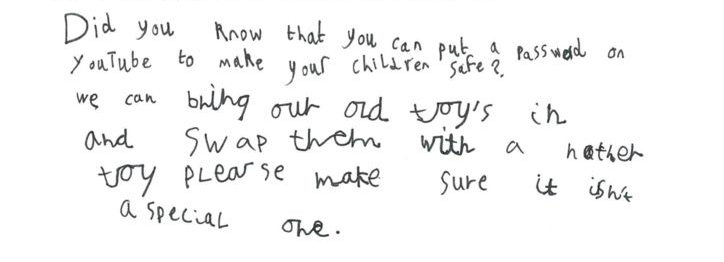 Did you know that you can put a Password on
YouTube to make your children safe?
we can bring our old toy's in
and swap them with a nother
toy plearse make sure it isn't
a special one.